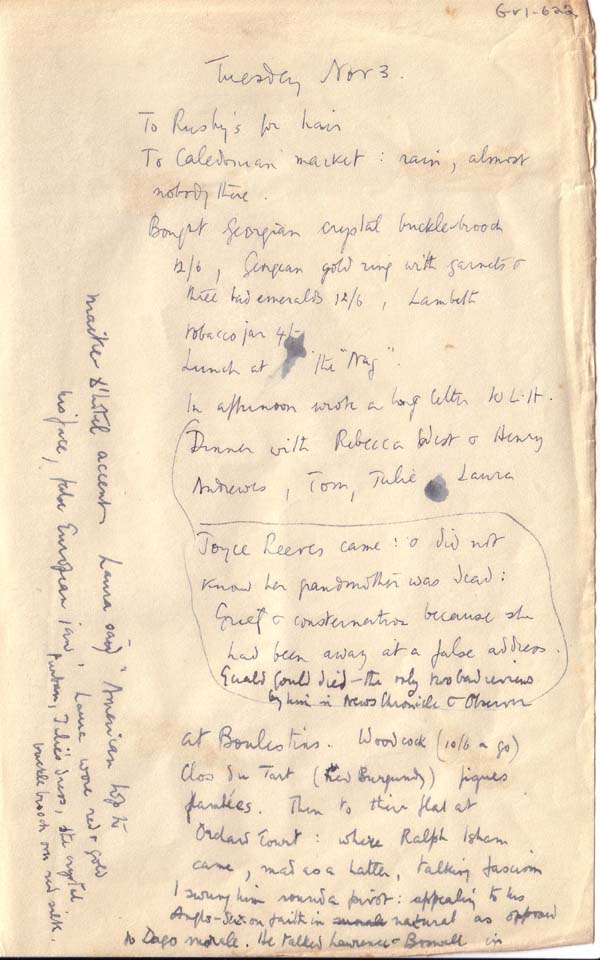 Gv1-622
Tuesday Nov 3.
To Rushy's for hair
To Caledonian market : rain, almost
nobody there.
Bought Georgian crystal buckle-brooch
12/6, Georgian gold ring with garnets &
three bad emeralds 12/6, Lambeth
tobacco jar 4/-
Lunch at "the "Nag".
In afternoon wrote a long letter to L.H.
Dinner with Rebecca West & Henry
Andrewes, Tom, Julie Laura
Joyce Reeves came : & did not
know her grandmother was dead :
Grief & consternation because she
had been away at a false address.
Gerald Gould died – the only two bad reviews
by him in News Chronicle & Observer
at Boulestins. Woodcock (10/6 a go)
Clos du Tart (Red Burgundy) figues
flambées. Then to their flat at
Orchard Court : where Ralph Isham
came, mad as a hatter, talking fascism
I swung him round a pivot : appealing to his
Anglo-Saxon faith in natural as opposed
to Dago morale. He talked Lawrence & Boswell in
maitre d'hôtel accent Laura said "American top to
his face, false European jaw". Laura wore red & gold
Julie's dress, the crystal
buckle brooch on red silk.